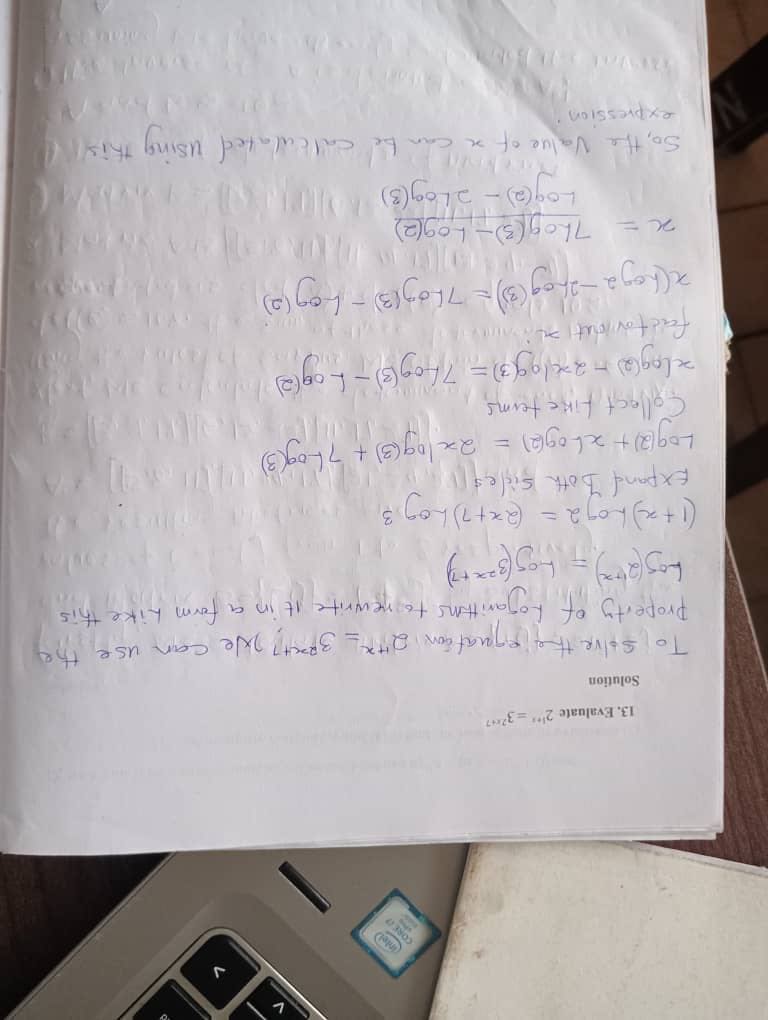 intel
CORE i7
13. Evaluate 2¹⁺ˣ = 3²ˣ⁺⁷
Solution
To solve the equation 2¹⁺ˣ = 3²ˣ⁺⁷, We can use the
property of Logarithms to rewrite it in a form Like this
Log(2¹⁺ˣ) = Log(3²ˣ⁺⁷)
(1+x) Log 2 = (2x+7) Log 3
Expand Both sides
Log(2) + xLog(2) = 2xlog(3) + 7Log(3)
Collect Like terms
xlog(2) - 2xlog(3) = 7Log(3) - Log(2)
factor out x:
x(Log2 - 2Log(3)) = 7Log(3) - Log(2)
x = 7Log(3) - Log(2)
Log(2) - 2Log(3)
So, the Value of x can be calculated using this
expression.